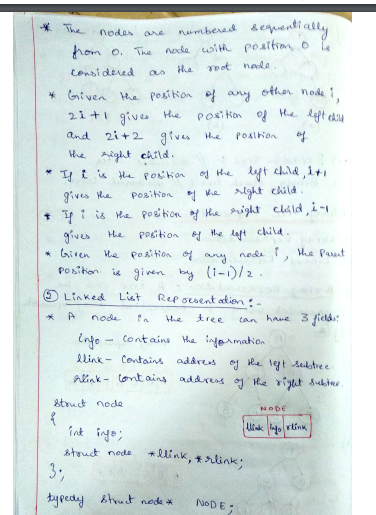 * The nodes are numbered sequentially
from 0. The node with position 0 is
considered as the root node.
* Given the position of any other node i,
2i+1 gives the position of the left child
and 2i+2 gives the position of
the right child.
* If i is the position of the left child, i+1
gives the position of the right child.
* If i is the position of the right child, i-1
gives the position of the left child.
* Given the position of any node i, the parent
position is given by (i-1)/2.
② Linked List Representation :-
* A node in the tree can have 3 fields:
info - contains the information
llink - Contains address of the left subtree
rlink - Contains address of the right subtree.
struct node
{
int info;
struct node *llink, *rlink;
};
NODE
llink info rlink
typedef struct node* NODE;